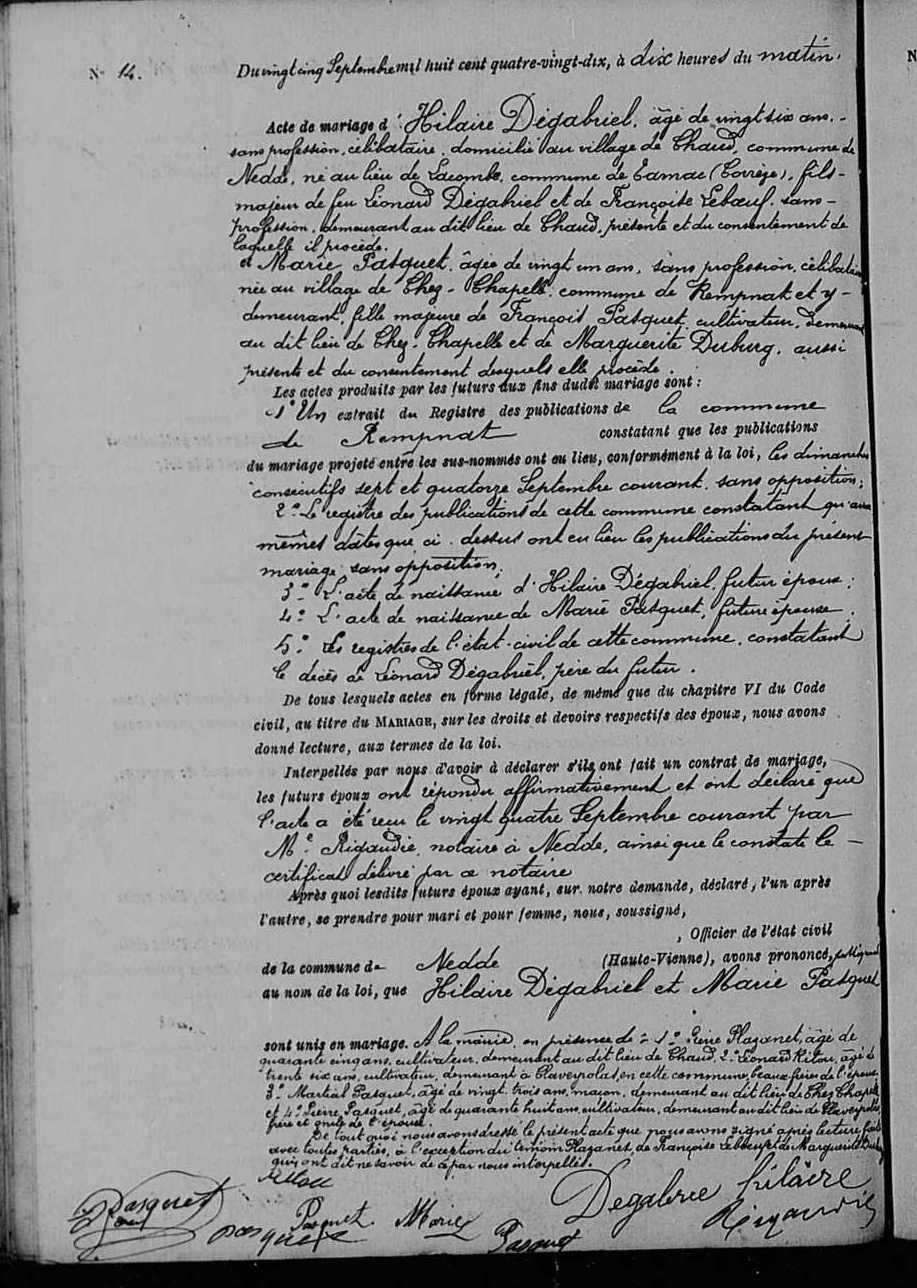 N° 14.
Du vingt cinq Septembre mil huit cent quatre-vingt-dix, à dix heures du matin.
Acte de mariage d'Hilaire Dégabriel, âgé de vingt six ans,
sans profession, célibataire, domicilié au village de Chaud, commune de
Nedde, né au lieu de Lacombe, commune de Tarnac (Corrèze), fils
majeur de feu Léonard Dégabriel et de Françoise Lebœuf, sans
profession, demeurant au dit lieu de Chaud, présente et du consentement de
laquelle il procède.
et Marie Pasquet, âgée de vingt un ans, sans profession, célibataire
née au village de Chez-Chapelle, commune de Rempnat et y
demeurant, fille majeure de François Pasquet, cultivateur, demeurant
au dit lieu de Chez-Chapelle et de Marguerite Duburg, aussi
présents et du consentement desquels elle procède.
Les actes produits par les futurs aux fins dudit mariage sont :
1° Un extrait du Registre des publications de la commune
de Rempnat constatant que les publications
du mariage projeté entre les sus-nommés ont eu lieu, conformément à la loi, les dimanches
consécutifs sept et quatorze Septembre courant, sans opposition;
2° Le registre des publications de cette commune constatant qu'aux
mêmes dates que ci-dessus ont eu lieu les publications du présent
mariage sans opposition;
3° L'acte de naissance d'Hilaire Dégabriel, futur époux;
4° L'acte de naissance de Marie Pasquet, future épouse.
5° Les registres de l'état-civil de cette commune, constatant
le décès de Léonard Dégabriel, père du futur.
De tous lesquels actes en forme légale, de même que du chapitre VI du Code
civil, au titre du MARIAGE, sur les droits et devoirs respectifs des époux, nous avons
donné lecture, aux termes de la loi.
Interpellés par nous d'avoir à déclarer s'ils ont fait un contrat de mariage,
les futurs époux ont répondu affirmativement et ont déclaré que
l'acte a été reçu le vingt quatre Septembre courant par
Me Rigaudie, notaire à Nedde, ainsi que le constate le
certificat délivré par ce notaire
Après quoi lesdits futurs époux ayant, sur notre demande, déclaré, l'un après
l'autre, se prendre pour mari et pour femme, nous, soussigné,
, Officier de l'état civil
de la commune de Nedde (Haute-Vienne), avons prononcé,
au nom de la loi, que Hilaire Dégabriel et Marie Pasquet
sont unis en mariage. A la mairie, en présence de : 1° Pierre Plazanet, âgé de
quarante cinq ans, cultivateur, demeurant au dit lieu de Chaud, 2° Léonard Ritou, âgé de
trente six ans, cultivateur, demeurant à Claveyrolas, en cette commune, beaux-frères de l'époux,
3° Martial Pasquet, âgé de vingt-trois ans, maçon, demeurant au dit lieu de Chez Chapelle
et 4° Pierre Pasquet, âgé de quarante huit ans, cultivateur, demeurant au dit lieu de Claveyrolas,
frère et oncle de l'épouse.
De tout quoi nous avons dressé le présent acte que nous avons signé après lecture faite
avec toutes parties, à l'exception du témoin Plazanet, de Françoise Lebœuf et de Marguerite Duburg
qui ont dit ne savoir de ce par nous interpellés.
Degabrie hilaire
Pasquet Pasquet Marie Rigaudie
Pasquet Pasquet